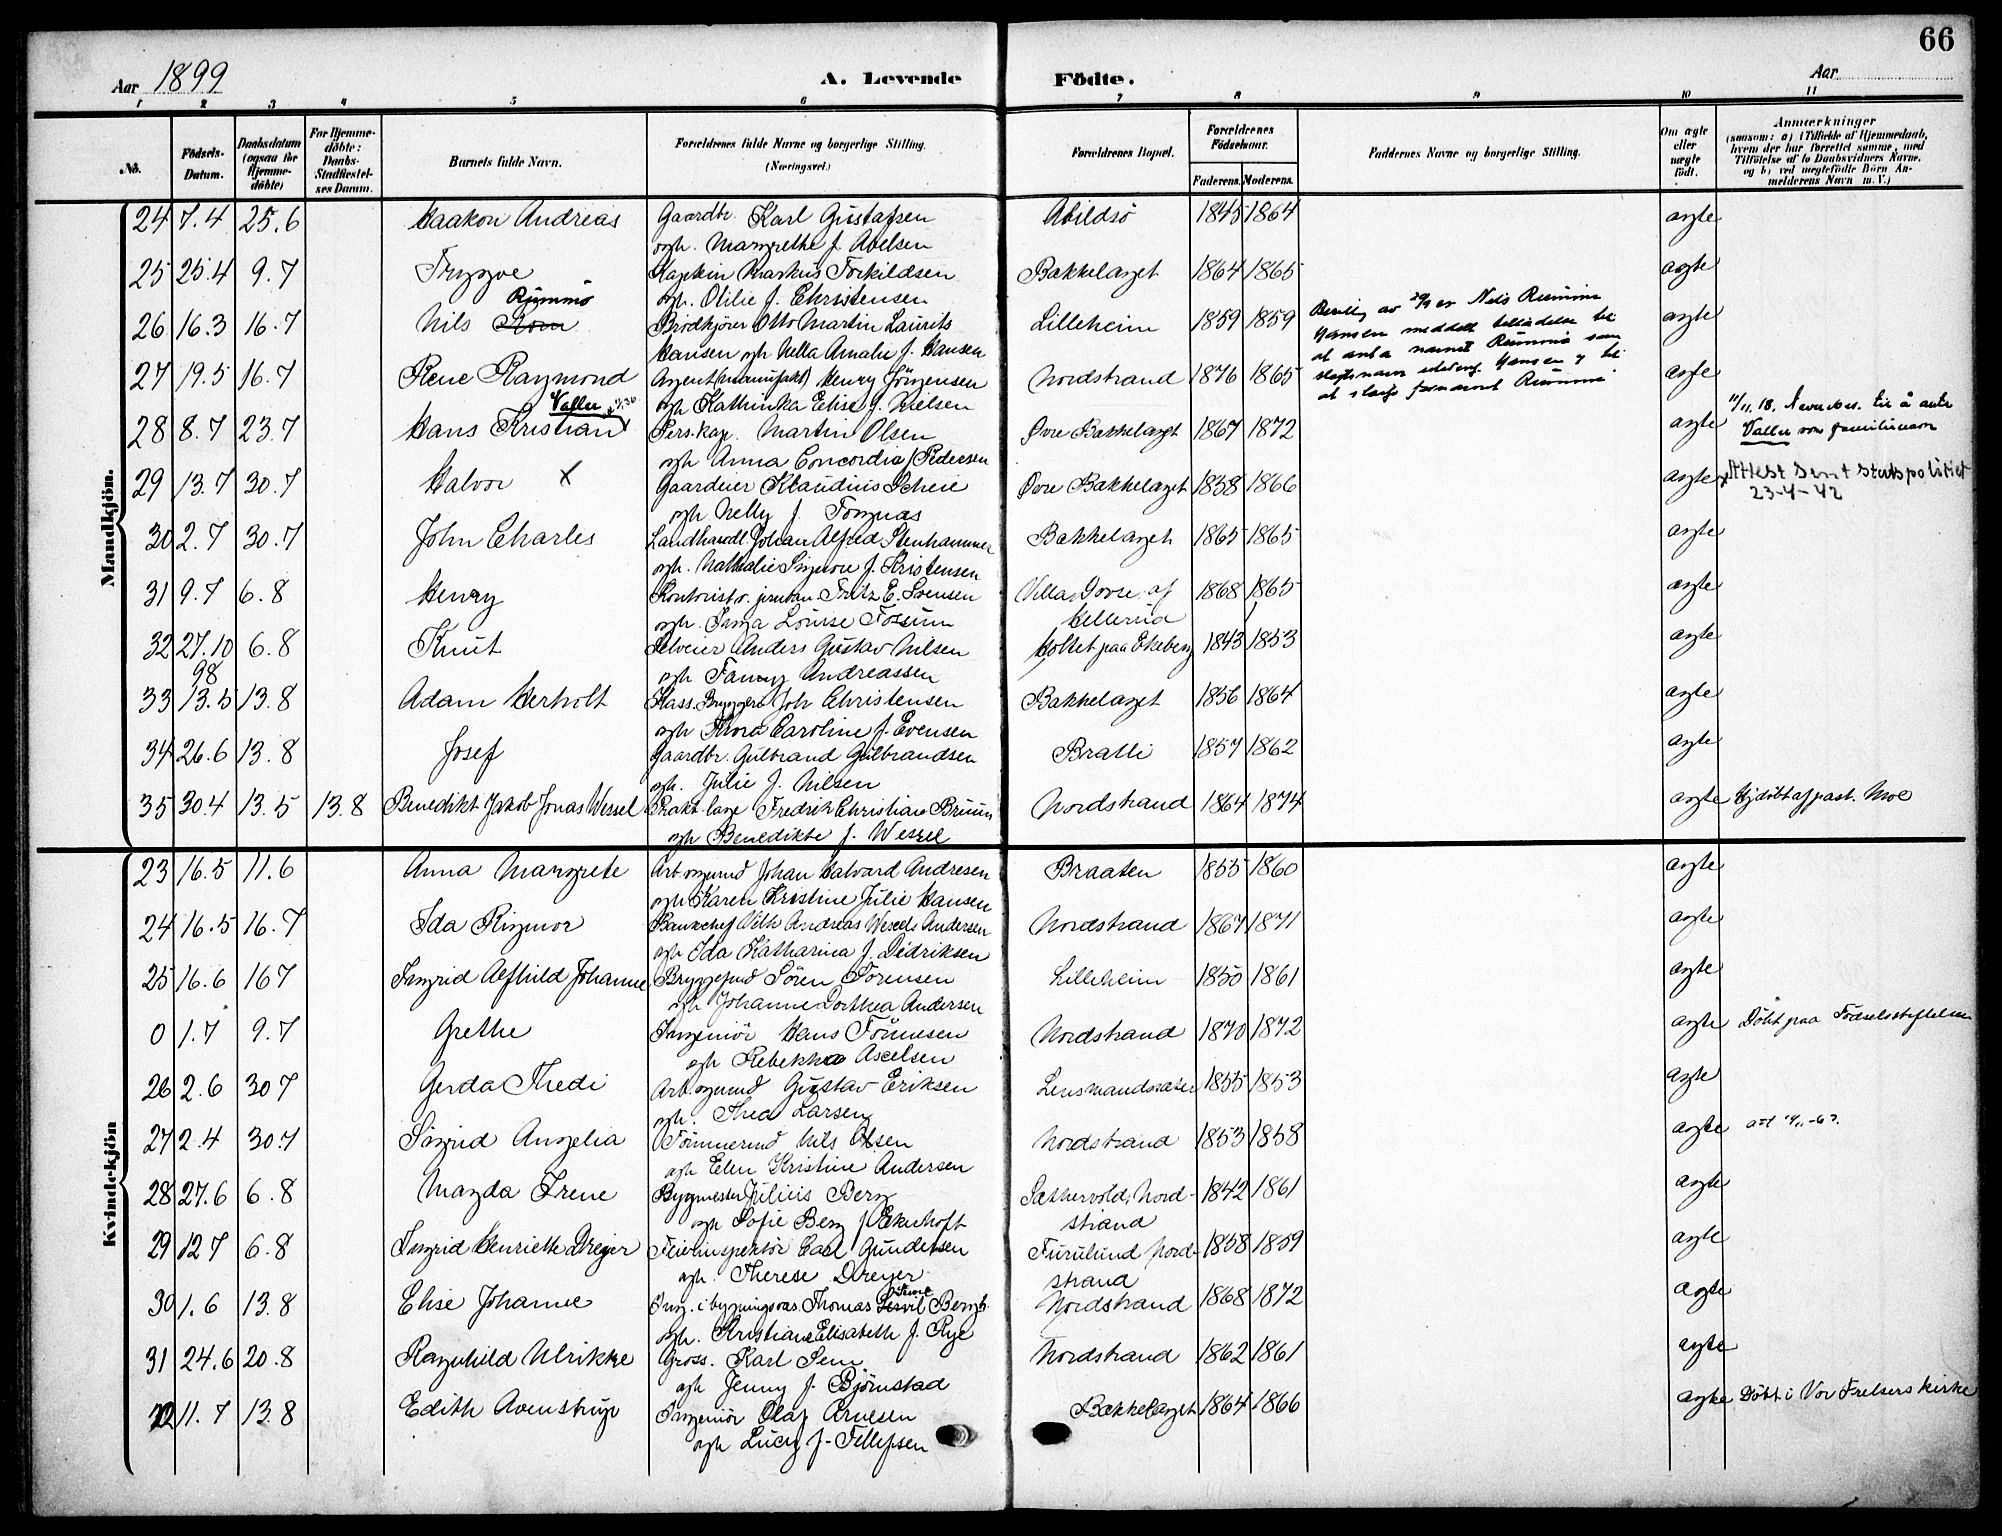 66
Aar 1899
A. Levende Födte.
Aar
1 2 3 4 5 6 7 8 9 10 11
No.
Födsels-Datum.
Daabsdatum (ogsaa for Hjemme-döbte)
For Hjemme-döbte: Daabs-Stadfæstel-ses Datum.
Barnets fulde Navn.
Forældrenes fulde Navne og borgerlige Stilling. (Næringsvei.)
Forældrenes Bopæl.
Forældrenes Födselsaar.
Faderens. Moderens.
Faddernes Navne og borgerlige Stilling.
Om ægte eller uægte födt.
Anmærkninger
(saasom: a) i Tilfælde af Hjemmedaab, hvem der har forrettet samme, med Tilföielse af to Daabsvidners Navne, og b) ved uægtefödte Börn An-melderens Navn m. V.)
Mandkjön.
24 7.4 25.6 Haakon Andreas Gaardbr. Karl Gustafsen Abildsö 1845 1864 ægte
ogh. Margrethe f. Abelsen
25 25.4 9.7 Tryggve Kaptein Markus Torkildsen Bækkelaget 1864 1865 ægte
ogh. Otilie f. Christensen
Rummo
26 16.3 16.7 Nils Brödkjörer Otto Martin Laurits Lilleheim 1859 1859 Bevilg av Nils Rummo ægte
Hansen ogh Nella Amalie f. Hansen Hansen meddelt tilladelse til
at anta navnet Rummo som
27 19.5 16.7 Rene Raymond Agent (manufakt) Henry Jörgensen Nordstrand 1876 1865 slegtsnavn istedenf. Hansen ægte
ogh Kathinka Elise f. Nielsen
Valler
28 8.7 23.7 Hans Kristian Pers.kap. Martin Olsen Övre Bækkelaget 1867 1872 ægte 11/11.18. til å anta Valler som familienavn
ogh Anna Concordia f Pedersen
29 13.7 30.7 Halvor X Gaardeier Klaudius Scheie Övre Bækkelaget 1858 1866 ægte x Attest sent Statspolitiet 23-4-42
ogh Nelly f.
30 2.7 30.7 John Charles Landhandl. Johan Alfred Stenhammer Bækkelaget 1865 1865 ægte
ogh. Nathalie Signore f. Kristensen
31 9.7 6.8 Henry Kontorist v. jernban Fritz E. Svensen Villa Dovre af 1868 1865 ægte
ogh. Inga Louise Fossum Hellerud
32 27.10 6.8 Knut Selveier Anders Gustav Nilsen Holtet paa Ekeberg 1843 1853 ægte
98 ogh Fanny Andreassen
33 13.5 13.8 Adam Herholt Kass. Bryggeri Joh Christensen Bækkelaget 1856 1864 ægte
ogh Thora Caroline f. Evensen
34 26.6 13.8 Josef Gaardbr. Gulbrand Gulbrandsen Bratli 1857 1862 ægte
ogh. Julie f. Nilsen
35 30.4 13.5 13.8 Benedikt Jakob Jonas Wessel Prakt. læge Fredrik Christian Bruun Nordstrand 1864 1874 ægte Hjdöbt af past. Moe
ogh Benedikte f. Wessel
Kvindekjön
23 16.5 11.6 Anna Margrete Arb.mand Johan Halvard Andresen Braaten 1855 1860 ægte
ogh Karen Kristine Julie Hansen
24 16.5 16.7 Ida Rigmor Bankchef Vilh Andreas Wexels Andersen Nordstrand 1867 1871 ægte
ogh Ida Katharina f. Didriksen
25 16.6 167 Ingrid Alfhild Johanne Bryggefmd Sören Sörensen Lilleheim 1850 1861 ægte
ogh Johanne Dorthea Andersen
0 1.7 9.7 Grethe Ingeniör Hans Tönnesen Nordstrand 1870 1872 ægte Döbt paa Födselsstiftelsen
ogh Rebekka Axelsen
26 2.6 307 Gerda Thedi Arb.mand Gustav Eriksen 1855 1853 ægte
ogh. Thea Larsen
27 2.4 307 Sigrid Angelia Tömmermd Nils Olsen Nordstrand 1853 1858 ægte
ogh Elen Kristine Andersen
28 27.6 6.8 Magda Irene Bygmester Julius Berg Sæthervold, Nord- 1842 1861 ægte
ogh Sofie Berg f Ekerholt strand
29 12 7 6.8 Ingrid Henriette Dreyer Feierinspektör Carl Gundersen Furulund Nord- 1858 1859 ægte
ogh. Therese Dreyer strand
30 1.6 13.8 Elise Johanne Ing. i bygningsvæs. Thomas Bergh Nordstrand 1868 1872 ægte
ogh. Kristiane Elisabeth f. Rye
31 24.6 20.8 Ragnhild Ulrikke Gross. Karl Sem Nordstrand 1862 1861 ægte
ogh Jenny f. Björnstad
11.7 13.8 Edith Avenstrup Ingeniör Olaf Arnesen Bækkelaget 1864 1866 ægte Döbt i Vor Frelsers kirke
ogh Lucy f. Tellefsen